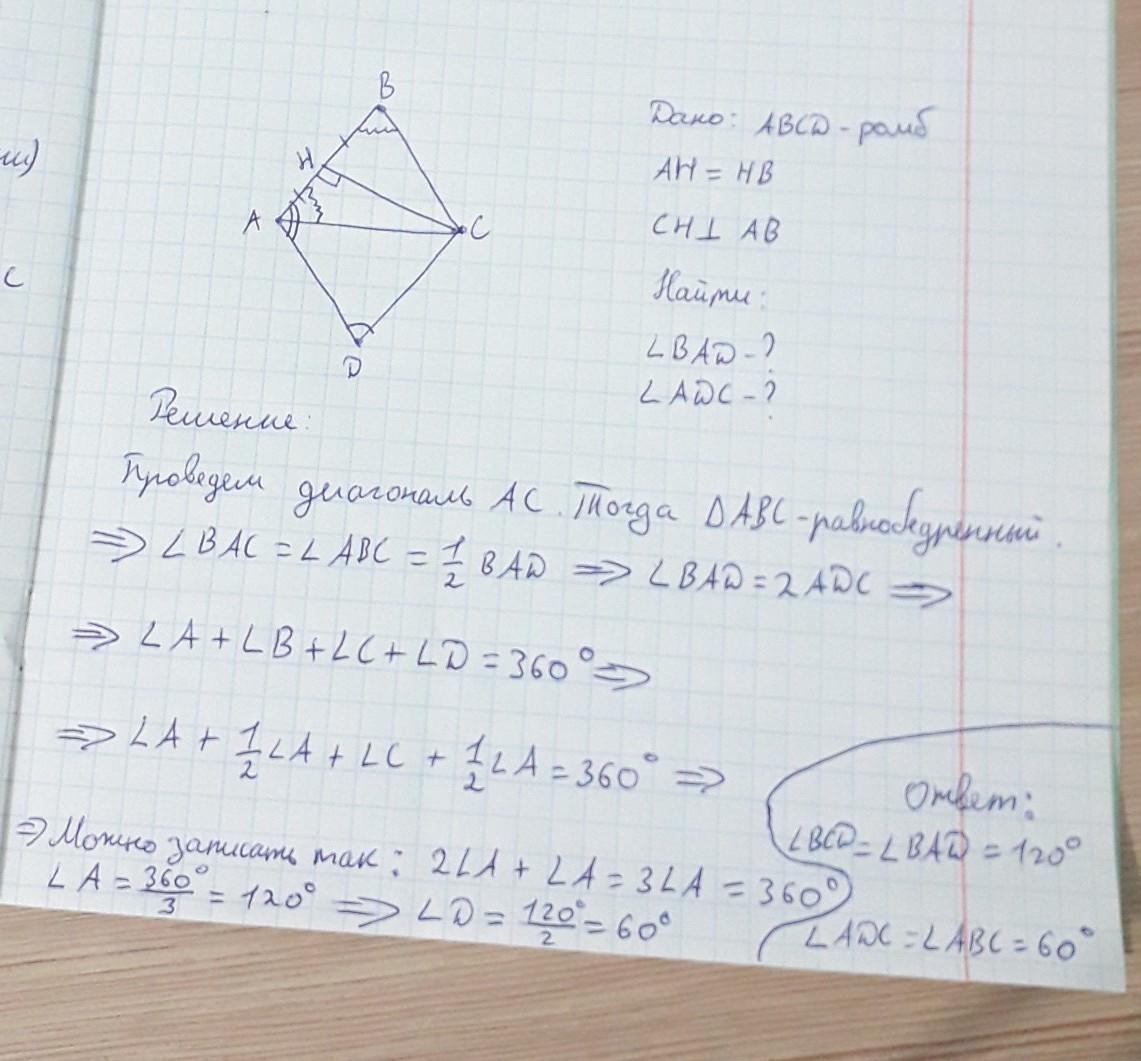 ш)
с
B
H
A
C
D
Дано: ABCD - ромб
AH = HB
CH⊥ AB
Найти:
∠BAD - ?
∠ADC - ?
Решение:
Проведем диагональ AC. Тогда ΔABC - равнобедренный.
⇒ ∠BAC = ∠ABC = 1/2 BAD ⇒ ∠BAD = 2ADC ⇒
⇒ ∠A + ∠B + ∠C + ∠D = 360° ⇒
⇒ ∠A + 1/2 ∠A + ∠C + 1/2 ∠A = 360° ⇒
⇒ Можно записать так: 2∠A + ∠A = 3∠A = 360°
∠A = 360°/3 = 120° ⇒ ∠D = 120°/2 = 60°
Ответ:
∠BCD = ∠BAD = 120°
∠ADC = ∠ABC = 60°